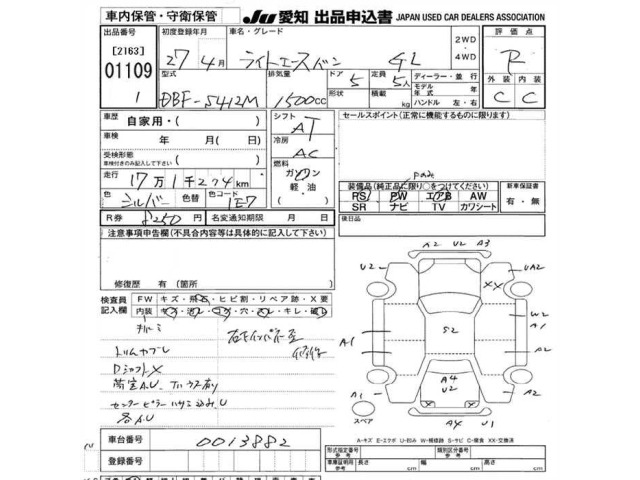 車内保管・守衛保管
JU 愛知 出品申込書 JAPAN USED CAR DEALERS ASSOCIATION
出品番号 初度登録年月 車名・グレード 評価点
[2163]
01109
1
27年4月 ライトエースバン GL 2WD・4WD R
型式 排気量 ドア 定員 ディーラー・並行 外装 内装
DBF-S412M 1500cc 5 5人
形状 積載 kg モデル年式 年
ハンドル 左・右 C C
車歴 自家用・( ) シフト AT セールスポイント(正常に機能するものに限ります)
車検 年 月( 日) 冷房 AC
受検形態
車検付きのみ記入して下さい
燃料
ガソリン
軽・油
( )
走行 17万1千274km
色 シルバー 色替 色コード 1E7
R券 8250円 名変通知期限 月 日
装備品(純正品に限り○をつけてください) 新車保証書
PS PW エアB AW 有・無
SR ナビ TV カワシート
注意事項申告欄(不具合内容等は具体的に記入して下さい) 後日品
修復歴 有(箇所
検査員記入欄 FW キズ・飛石・ヒビ割・リペア跡・X要
内装 キズ・汚レ・コゲ・穴・スレ・キレ・破レ
トリムカブレ
DシフトX
荷室A.U.
各AU
A2 U2 A3
U2 UA2
XX
W2
A1 A1
S2
A2
A4
U2
A1 A2
X X
スペア
A4 U1
車台番号 0013882
登録番号
A-キズ E-エクボ U-凹み W-補修跡 S-サビ C-腐食 XX-交換済
形式指定番号 参考 類別区分番号 参考
車庫証明用 参考 長さ cm 幅 cm 高さ cm